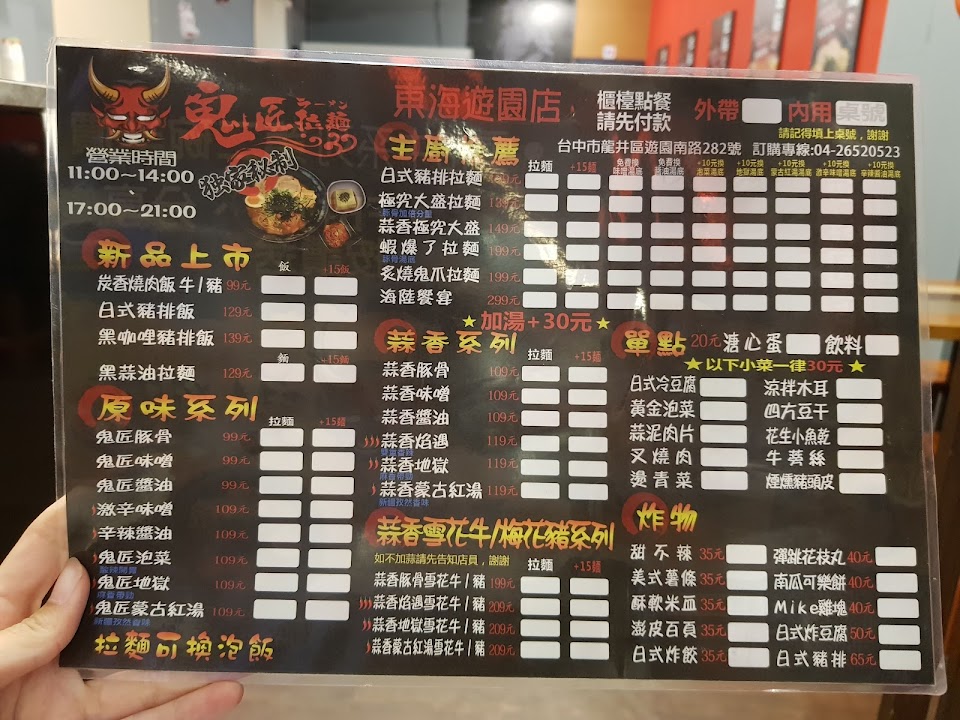 鬼匠拉麵
ラーメン
獨家秘制
東海遊園店
櫃檯點餐
請先付款
外帶 內用 桌號
請記得填上桌號，謝謝
台中市龍井區遊園南路282號 訂購專線:04-26520523
營業時間
11:00～14:00
17:00～21:00
新品上市 飯 +15飯
炭香燒肉飯 牛/豬 99元
日式豬排飯 129元
黑咖哩豬排飯 139元
麵 +15麵
黑蒜油拉麵 129元
原味系列 拉麵 +15麵
鬼匠豚骨 99元
鬼匠味噌 99元
鬼匠醬油 99元
激辛味噌 109元
辛辣醬油 109元
鬼匠泡菜 109元
酸辣開胃
鬼匠地獄 109元
麻香帶勁
鬼匠蒙古紅湯 109元
新疆孜然香味
拉麵可換泡飯
主廚 薦 拉麵 +15麵 免費換味噌湯底 免費換醬油湯底 +10元換泡菜湯底 +10元換地獄湯底 +10元換蒙古紅湯湯底 +10元換激辛味噌湯底 +10元換辛辣醬油湯底
日式豬排拉麵
極究大盛拉麵 139元
豚骨加倍分量
蒜香極究大盛 149元
蝦爆了拉麵 199元
豚骨湯底
炙燒鬼爪拉麵 199元
海陸饗宴 299元
★加湯+30元★
蒜香系列 拉麵 +15麵
蒜香豚骨 109元
蒜香味噌 109元
蒜香醬油 109元
蒜香焰遇 119元
蒜香地獄 119元
麻香帶勁
蒜香蒙古紅湯 119元
新疆孜然香味
蒜香雪花牛/梅花豬系列
如不加蒜請先告知店員，謝謝 拉麵 +15麵
蒜香豚骨雪花牛/豬 199元
蒜香焰遇雪花牛/豬 209元
蒜香地獄雪花牛/豬 209元
蒜香蒙古紅湯雪花牛/豬 209元
單點 20元 溏心蛋 飲料
★以下小菜一律30元★
日式冷豆腐 涼拌木耳
黃金泡菜 四方豆干
蒜泥肉片 花生小魚乾
叉燒肉 牛蒡絲
燙青菜 煙燻豬頭皮
炸物
甜不辣 35元 彈跳花枝丸 40元
美式薯條 35元 南瓜可樂餅 40元
酥軟米血 35元 Mike雞塊 40元
澎皮百頁 35元 日式炸豆腐 50元
日式炸餃 35元 日式豬排 65元